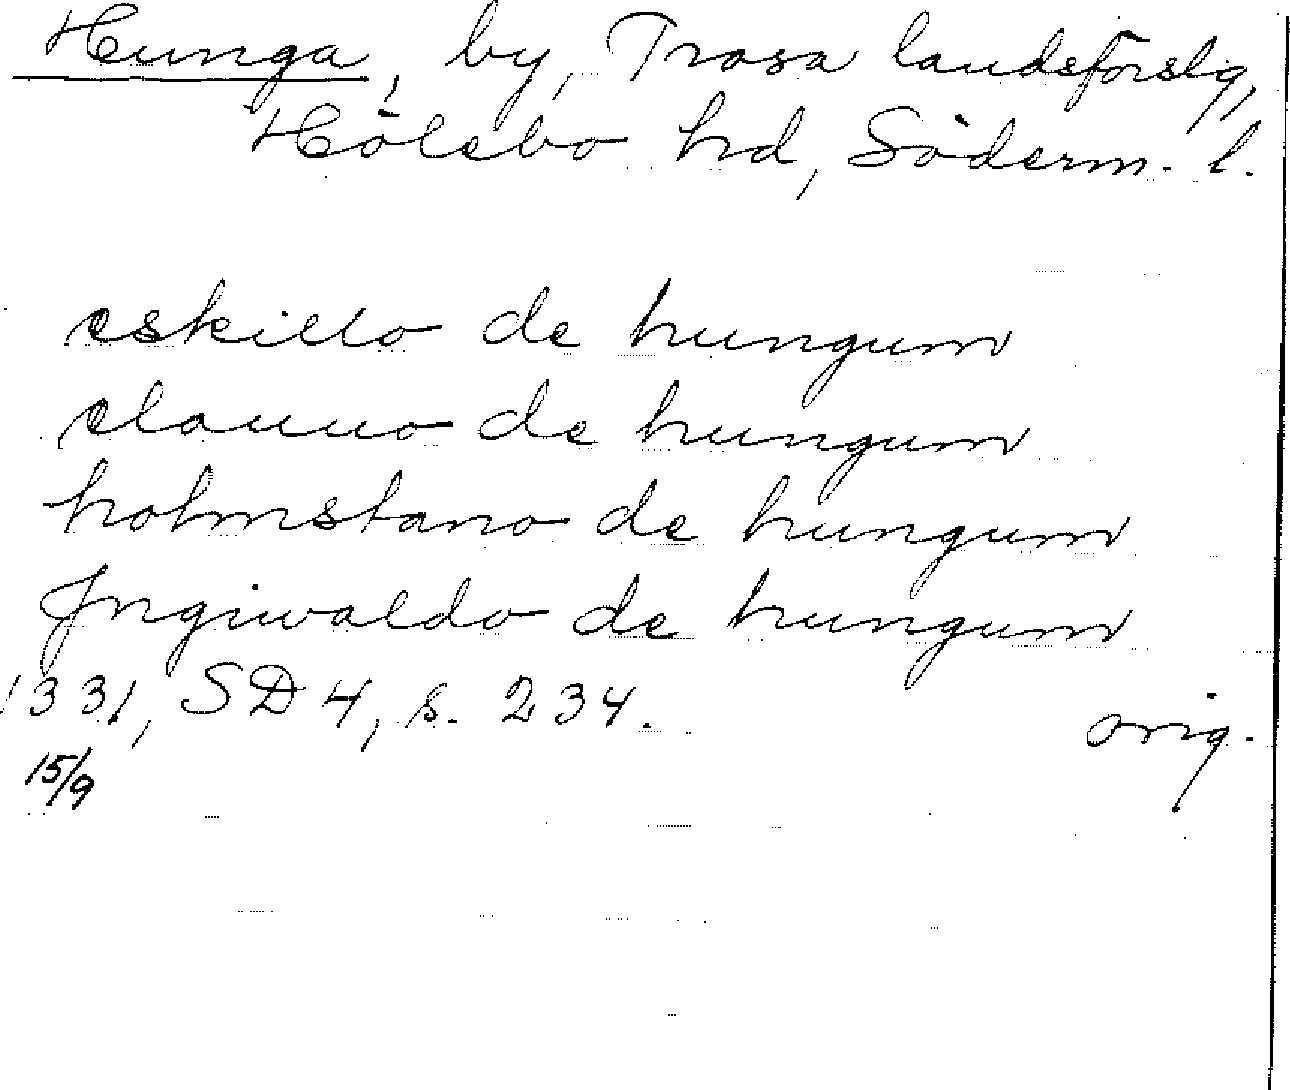 Hunga, by, Trosa landsförslg,
Hölebo hd, Söderm. l.
eskillo de hungum
elauuo de hungum
holmstano de hungum
Jngiwaldo de hungum
1331, SD 4, s. 234. orig.
15/9